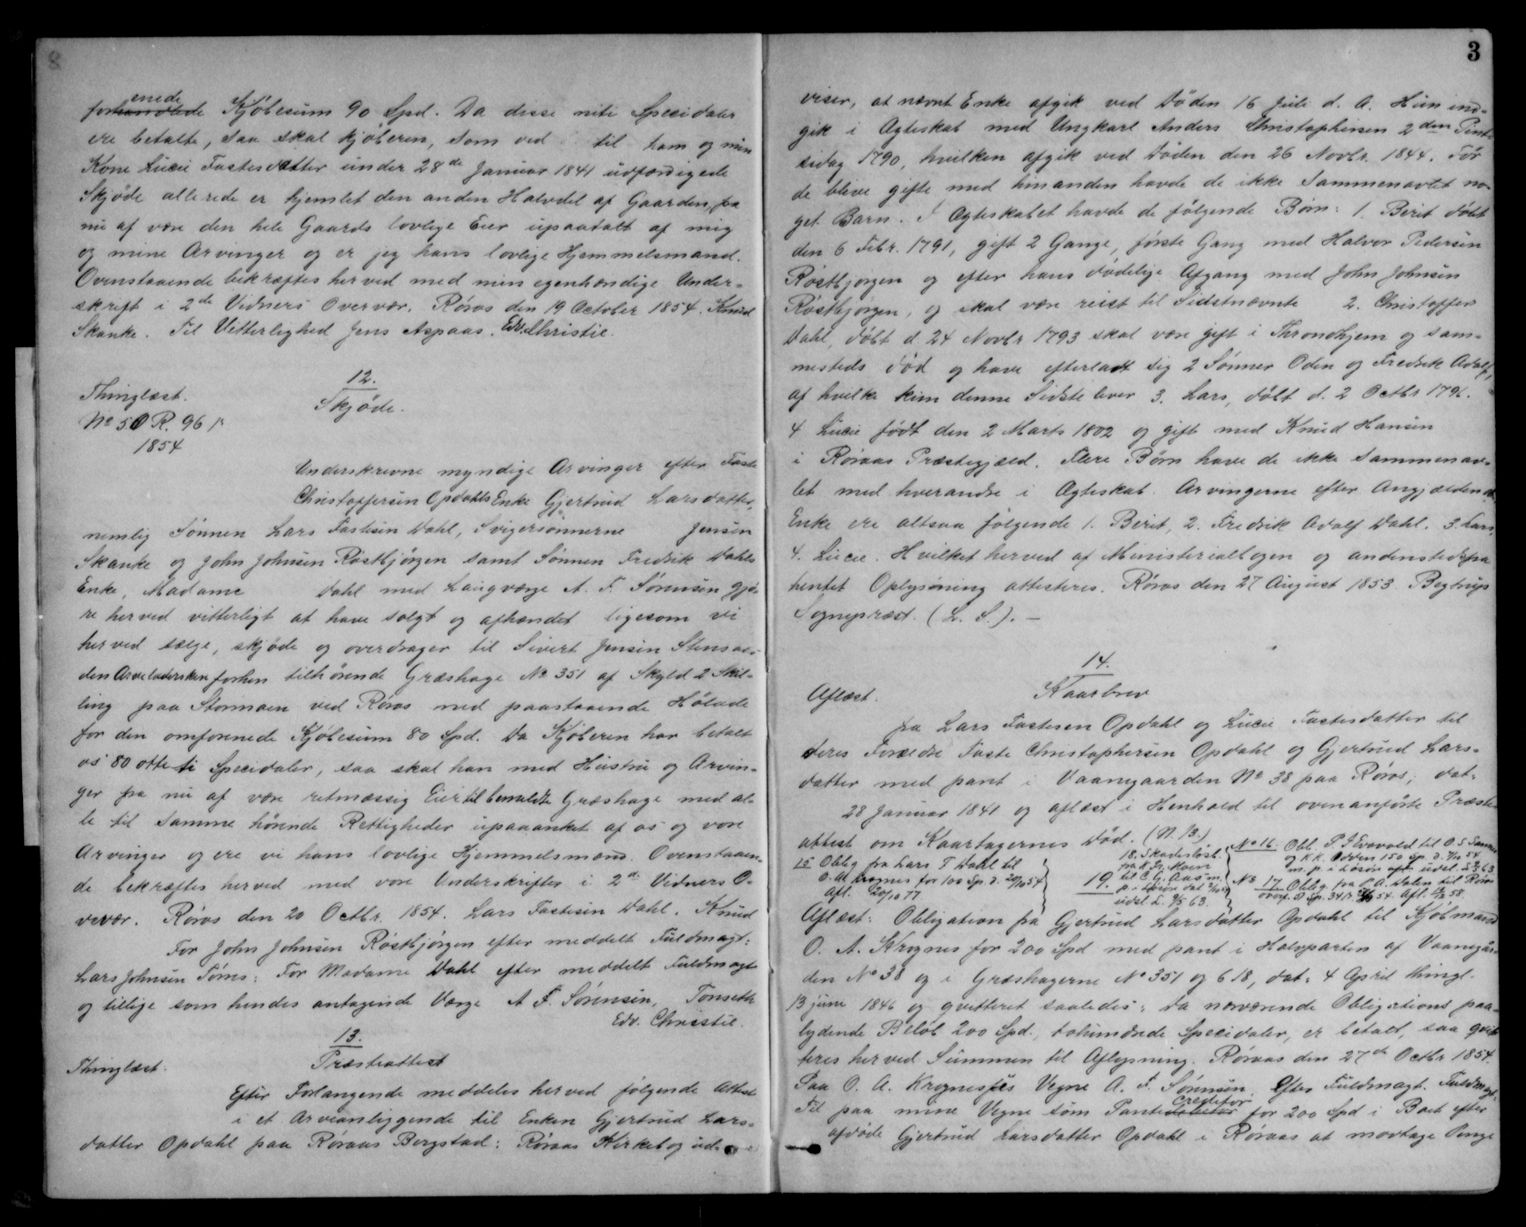 8
enede
forhandlede Kjöbesum 90 Spd. Da disse niti Specidaler
ere betalte, saa skal kjöberen, som ved til ham og min
Kone Lucie Fastesdatter under 28de Januar 1841 udfærdigede
Skjöde allerede er hjemlet den anden Halvdel af Gaarden, fra
nu af være den hele Gaards lovlige Eier upaatalt af mig
og mine Arvinger og er jeg hans lovlige Hjemmelsmand.
Ovenstaaende bekræftes herved med min egenhændige Under-
skrift i 2de Vidners Overvær. Röros den 19 October 1854. Knud
Skanke. Til Vitterlighed Jens Aspaas. Edv. Christie.
12.
Thinglæst. Skjöde.
No 50 R. 96
1854
Underskrevne myndige Arvinger efter Faste
Christoffersen Opdahls Enke Gjertrud Larsdatter,
nemlig Sönnen Lars Fastesen Dahl, Svigersönnerne Jensen
Skanke og John Johnsen Röstbjörgen samt Sönnen Fredrik Dahls
Enke, Madame Dahl med Laugværge A. F. Sörensen gjö-
re herved vitterligt at have solgt og afhændet ligesom vi
herved sælge, skjöde og overdrager til Sivert Jensen Stensaas
den Arveladersken forhen tilhörende Græshage No 351 af Skyld 2 Skil-
ling paa Stormoen ved Röros med paastaaende Hölade
for den omforenede Kjöbesum 80 Spd. Da Kjöberen har betalt
os 80 otteti Specidaler, saa skal han med Hustru og Arvin-
ger fra nu af være retmæssig Eier til bemeldte Græshage med al-
le til samme hörende Rettigheder upaaanket af os og vore
Arvinger og ere vi hans lovlige Hjemmelsmænd. Ovenstaaen-
de bekræftes herved med vore Underskrifter i 2de Vidners O-
vervær. Röros den 20 Octbr. 1854. Lars Fastesen Dahl. Knud
For John Johnsen Röstbjörgen efter meddelt Fuldmagt:
Lars Johnsen Tönis: For Madame Dahl efter meddelt Fuldmagt
og tillige som hendes antagende Værge A. F. Sörensen, Tonseth
Edv. Christie.
13.
Thinglæst. Præsteattest
Efter Forlangende meddeles herved fölgende Attest
i et Arveanliggende til Enken Gjertrud Lars-
datter Opdahl paa Röraas Bergstad: Röraas Kirkebog ud-
3
viser, at nævnt Enke afgik ved Döden 16 Juli d. A. Hun ind-
gik i Ægteskab med Ungkarl Anders Christophersen 2den Pint-
sedag 1790, hvilken afgik ved Döden den 26 Novbr. 1844. För
de blive gifte med hinanden havde de ikke sammenavlet no-
get Barn. I Ægteskabet havde de fölgende Börn: 1. Berit döbt
den 6 Febr. 1791, gift 2 Gange, förste Gang med Halvor Pedersen
Röstbjörgen og efter hans dödelige Afgang med John Johnsen
Röstbjörgen, og skal være reist til Sidstnævnte 2. Christoffer
Dahl, döbt d 24 Novbr 1793 skal være gift i Throndhjem og sam-
mesteds död og have efterladt sig 2 Sönner Oden og Fredrik Adolf,
af hvilke kun denne Sidste lever 3. Lars, döbt d. 2 Octbr 1796.
4 Lucie födt den 2 Marts 1802 og gift med Knud Hansen
i Röraas Præstegjæld. Flere Börn have de ikke sammenav-
let med hverandre i Ægteskab. Arvingerne efter Angjældende
Enke ere altsaa fölgende 1. Berit, 2. Fredrik Adolf Dahl. 3. Lars,
4. Lucie. Hvilket herved af Ministerialbogen og andenstedsfra
hentet Oplysning attesteres. Röros den 27 August 1853 Begtrup
Sognepræst. (L. S.). —
14.
Aflæst. Kaarbrev
fra Lars Fastesen Opdahl og Lucie Fastesdatter til
deres Forældre Faste Christophersen Opdahl og Gjertrud Lars-
datter med pant i Vaaningaarden No 38 paa Röros, dat.
28 Januar 1841 og aflæst i Henhold til ovenanförte Præste-
attest om Kaartagernes död. (N.B.)
15 Oblig fra Lars F. Dahl til
O. A. Krognes for 100 Sp. d. 20/10 54
Afl. 20/10 77
18. Skadeslöst.
19.
udsl. L. 9/5 63.
No 16 Obl. til O. S.
No 17 Oblig fra A. Dahn til
Aflæst: Obligation fra Gjertrud Larsdatter Opdahl til Kjöbmand
O. A. Krognes for 200 Spd med pant i Halvparten af Vaaningaar-
den No 38 og i Græshagerne No 351 og 618, dat. 4 April thingl.
13 juni 1846 og qvitteret saaledes: Da nærværende Obligations paa-
lydende Belöb 200 Spd., tohundrede Specidaler, er betalt, saa qvit-
teres herved Summen til Aflysning. Röraas den 27de Octbr 1854
Paa O. A. Krognes's Vegne A. F. Sörensen efter Fuldmagt. Fuldmagt:
Creditor
Til paa mine Vegne som Pantedebitor for 200 Spd i Boet efter
afdöde Gjertrud Larsdatter Opdahl i Röraas at modtage Penge